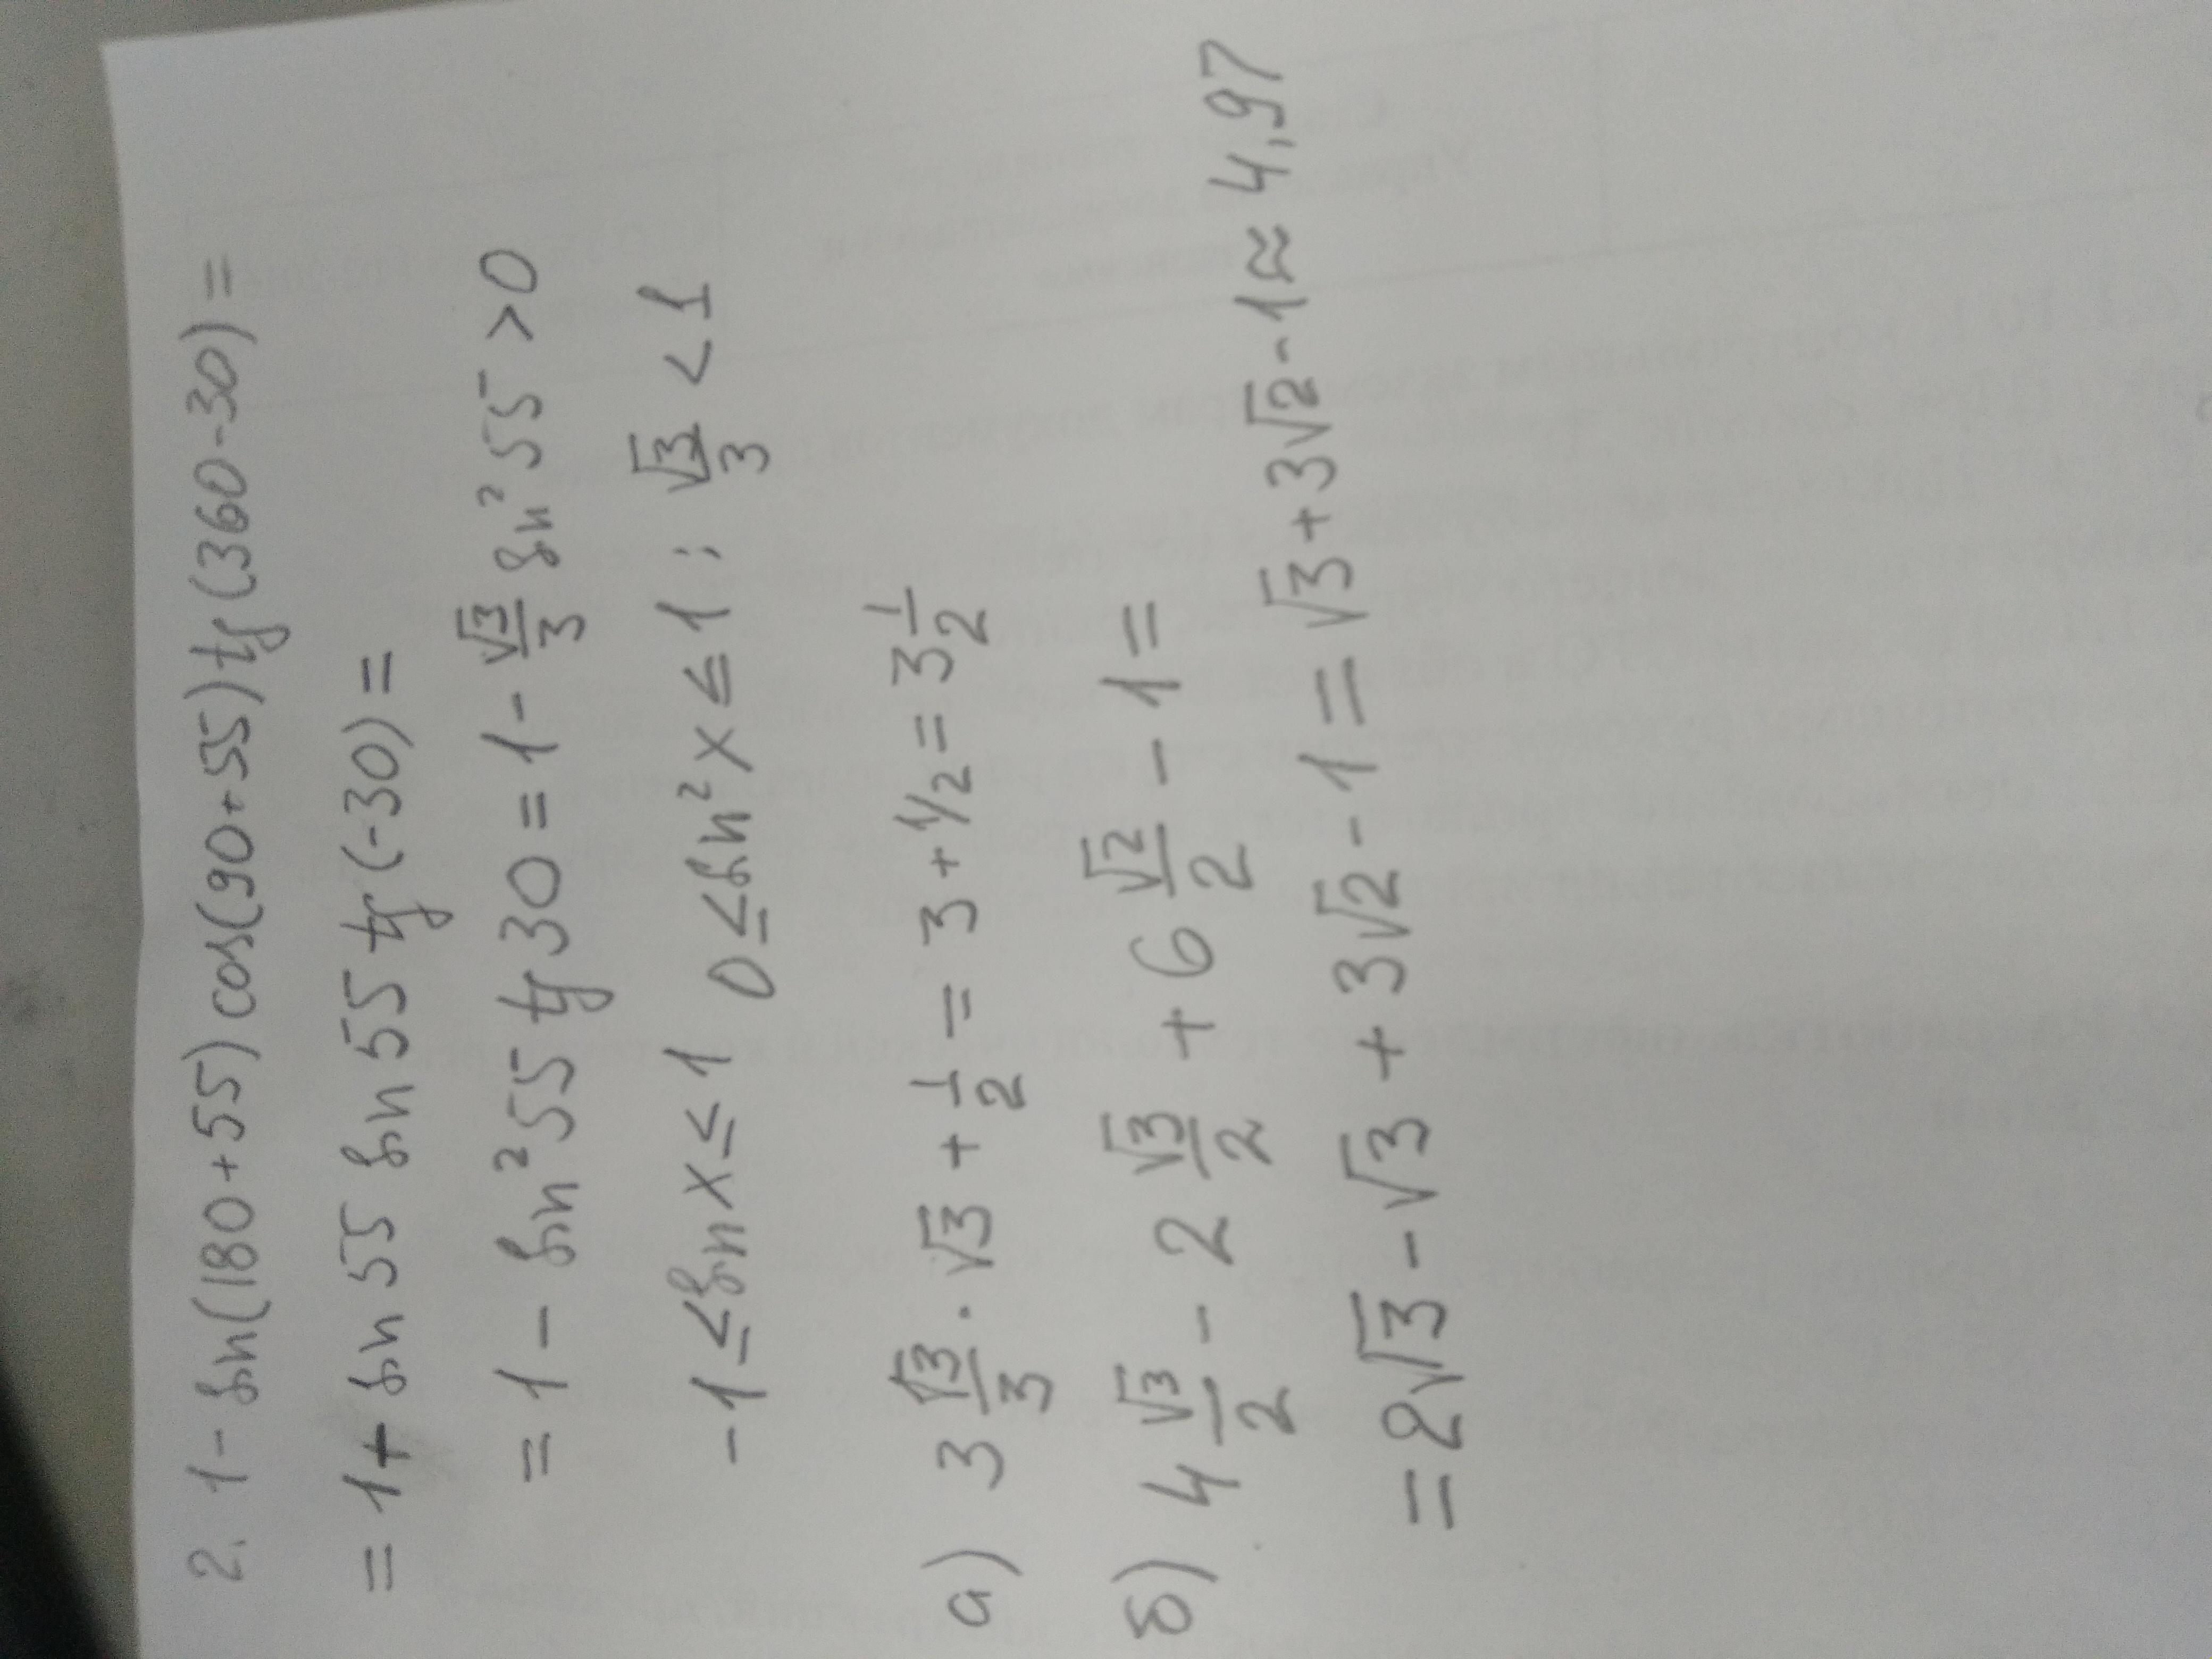 2. 1 - sin(180+55) cos(90+55) tg(360-30) =
= 1 + sin 55 sin 55 tg(-30) =
= 1 - sin² 55 tg 30 = 1 - √3/3 sin² 55 > 0
-1 ≤ sin x ≤ 1 0 ≤ sin² x ≤ 1 ; √3/3 < 1
а) 3 √3/3 · √3 + 1/2 = 3 + 1/2 = 3 1/2
б) 4 √3/2 - 2 √3/2 + 6 √2/2 - 1 =
= 2√3 - √3 + 3√2 - 1 = √3 + 3√2 - 1 ≈ 4,97